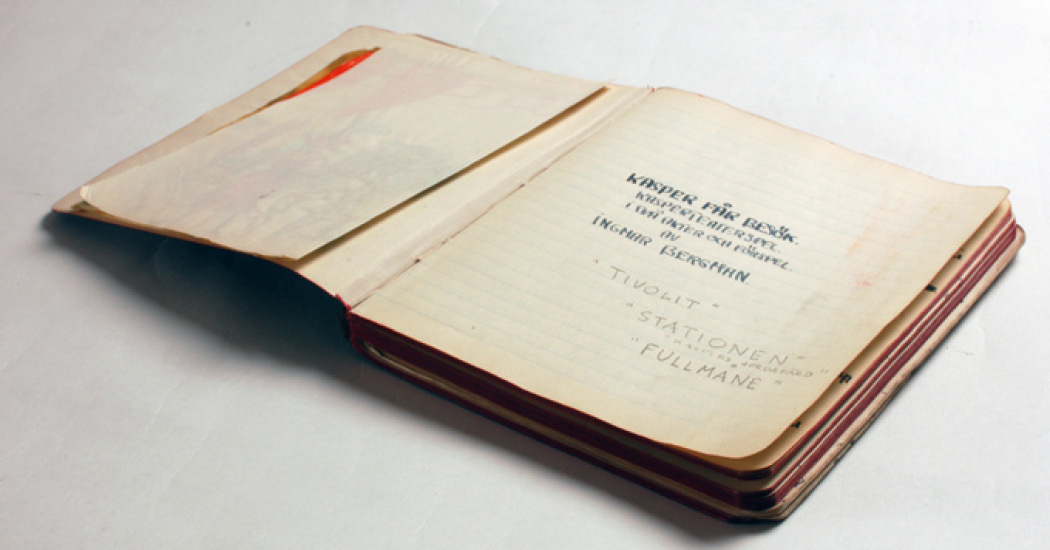 KASPER FÅR BESÖK.
KASPERTEATERSPEL.
I TVÅ AKTER OCH FÖRSPEL.
AV
INGMAR BERGMAN.
"TIVOLIT"
"STATIONEN"
"KASPERS
"FULLMÅNE"